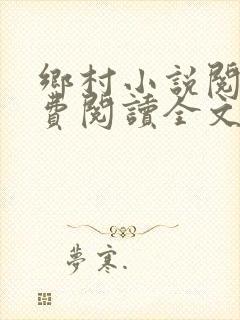 鄉村小說閱
費閱讀全文
夢寒.